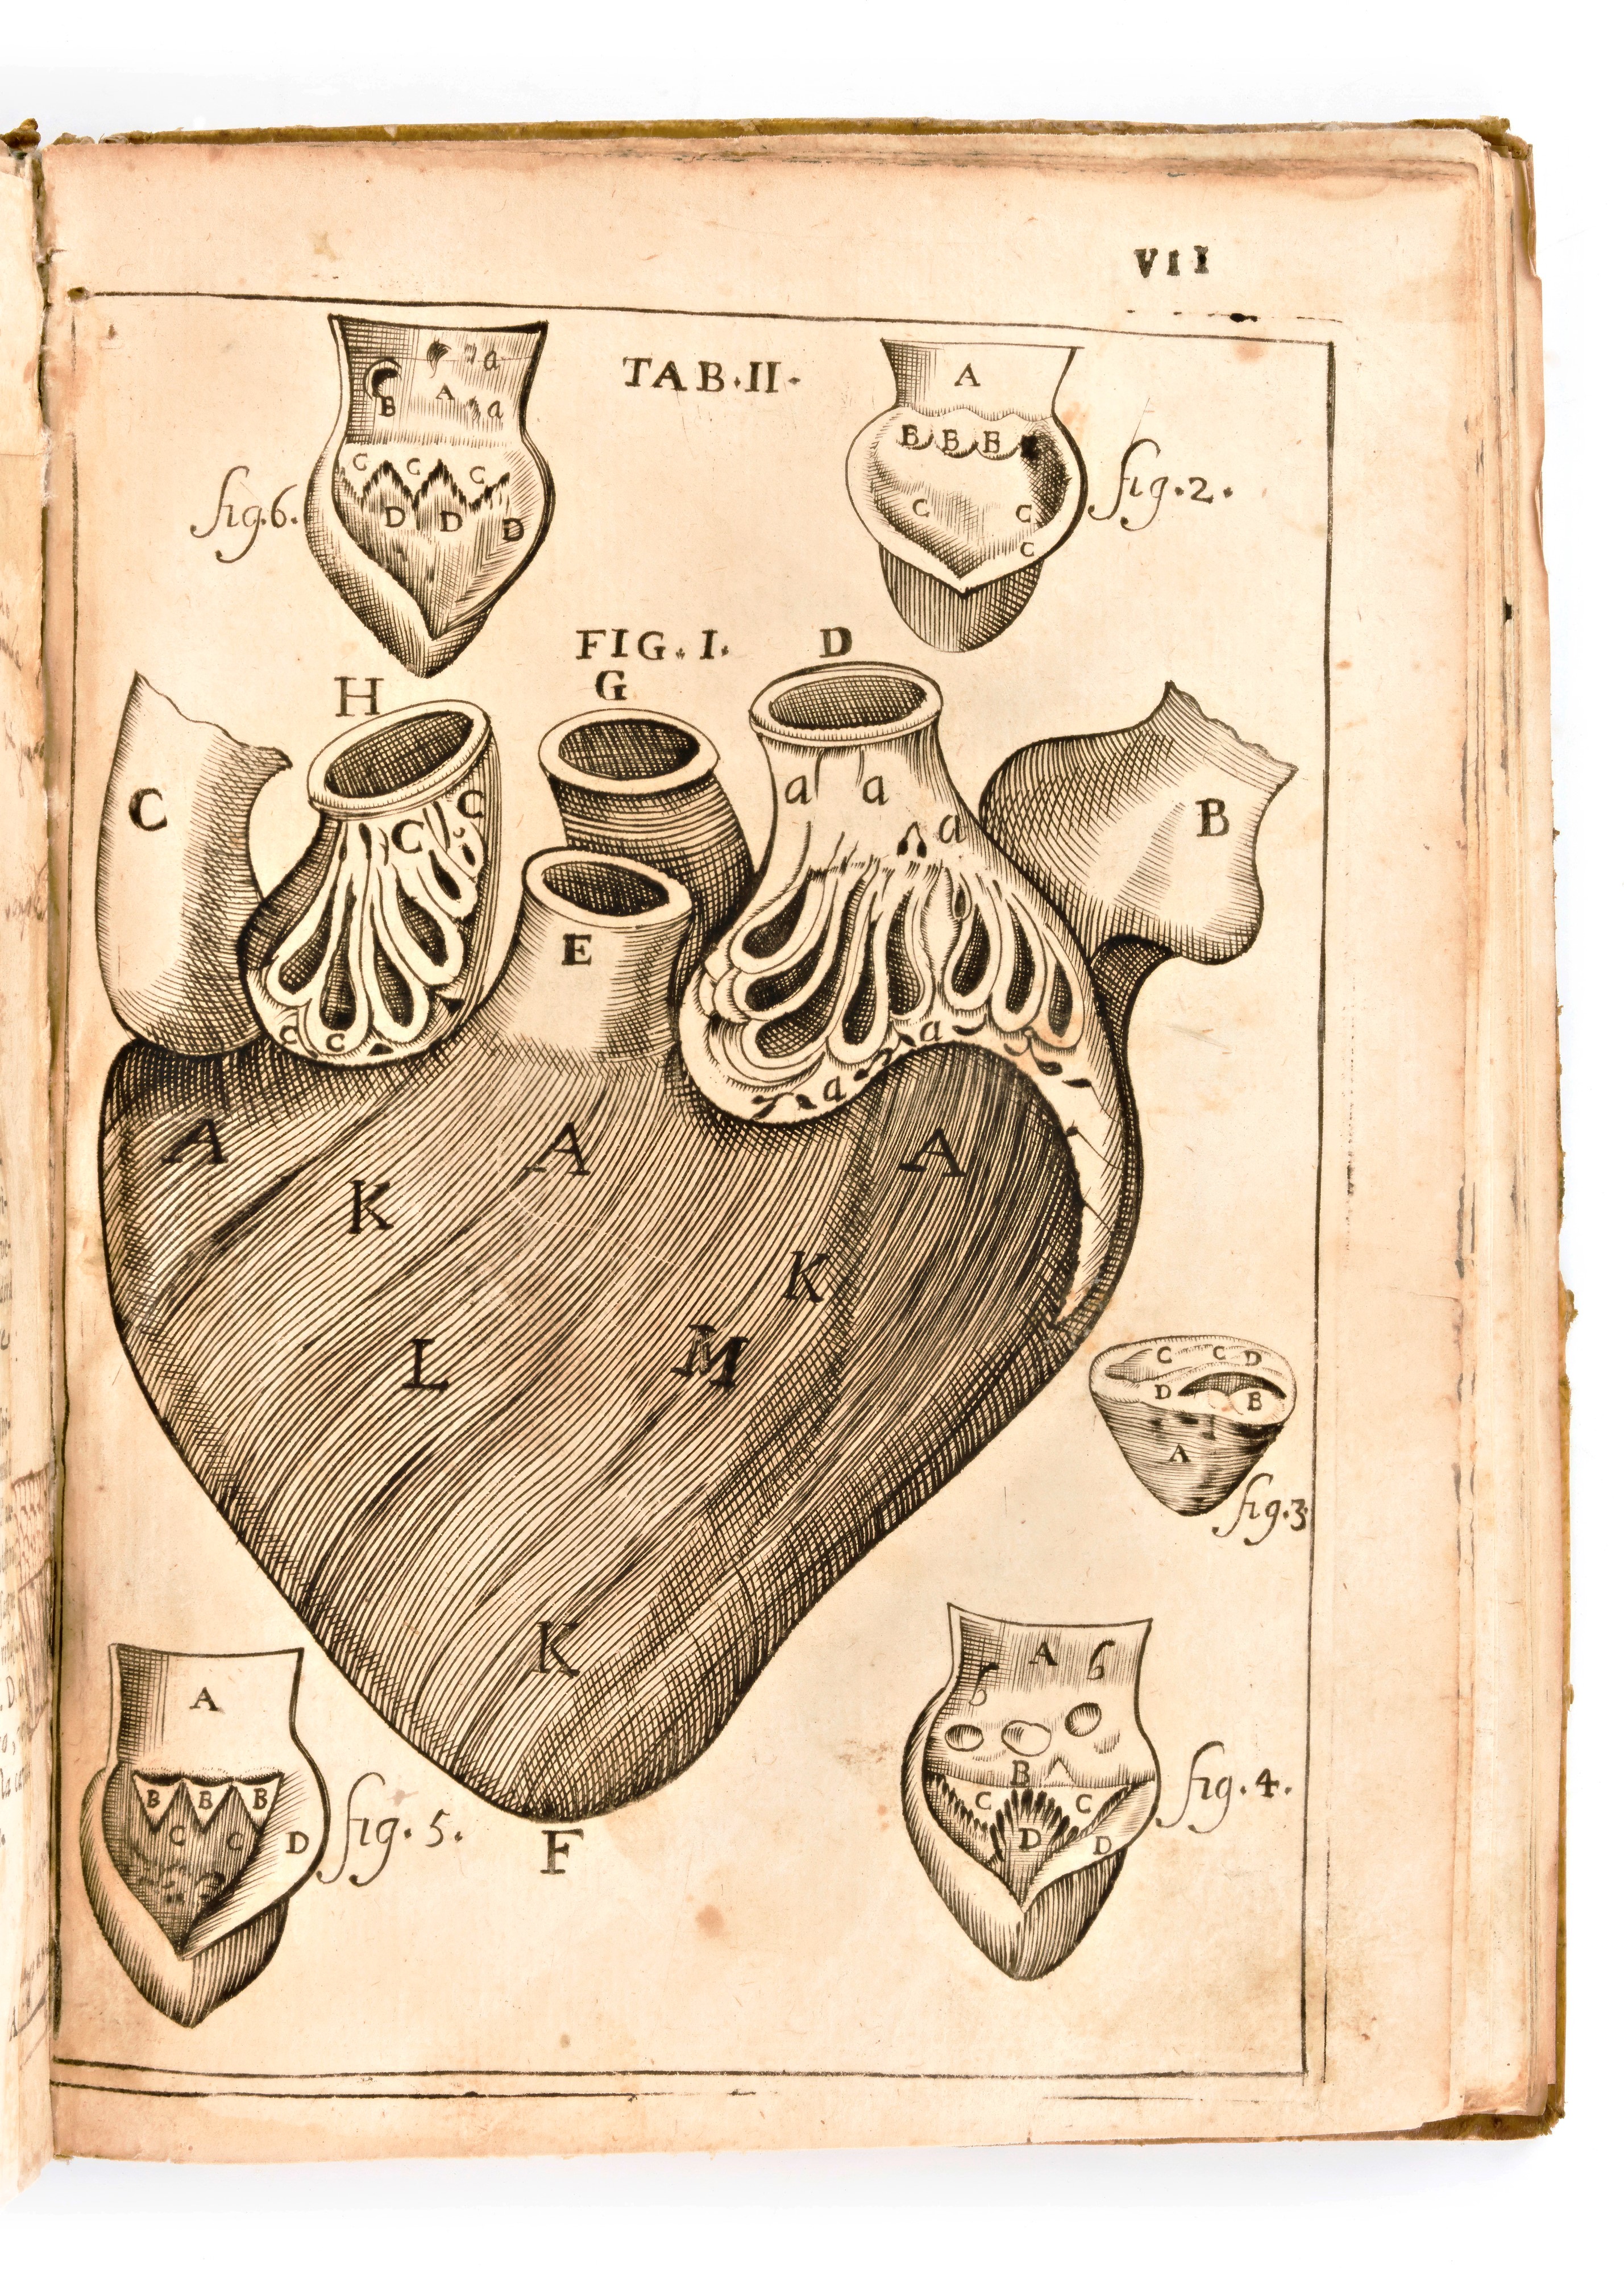 VII
TAB.II.
a
B
A
a
C C C
D D D
fig.6.
A
B B B
C C
C
fig.2.
FIG. I.
H
G
D
C
C
C
C C
E
a a
a
a
a
B
A A A
K
K
L M
K
F
C C D
D B
A
fig.3
A
B B B
C C
D
fig. 5.
A
B
C C
D D
fig. 4.